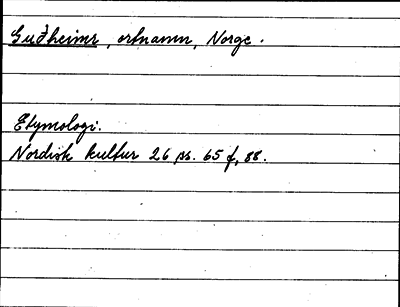 Guðheimr, ortnamn, Norge.
Etymologi.
Nordisk kultur 26 ss. 65 f, 88.